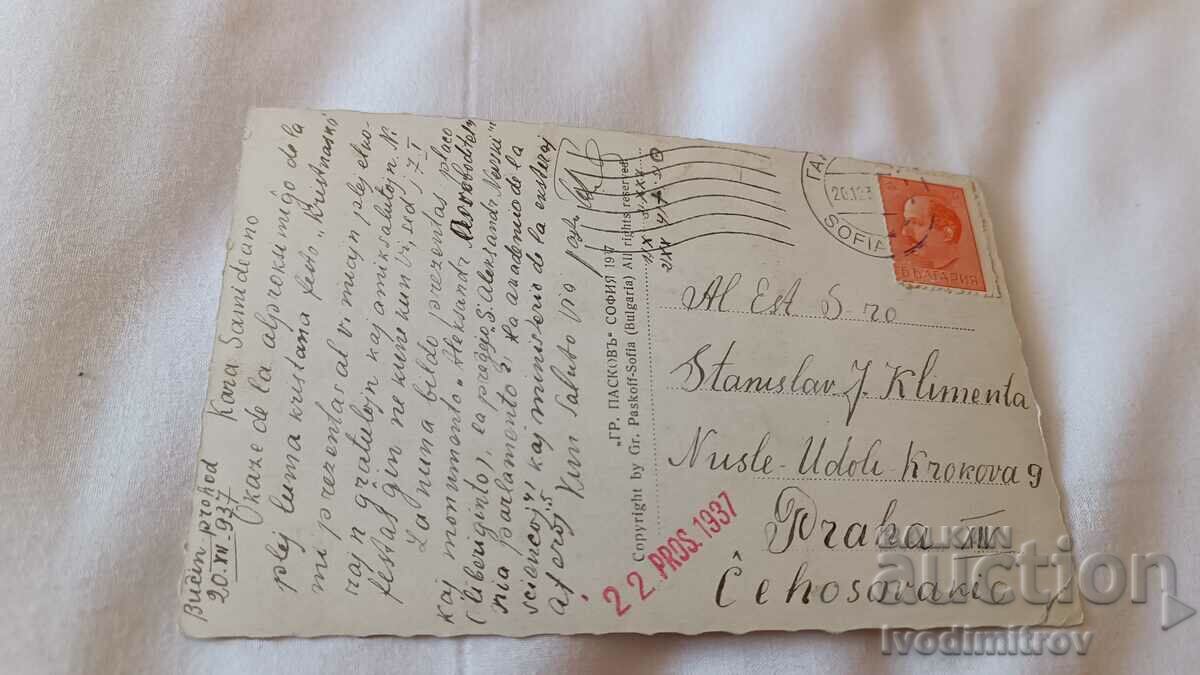 Bučin prohod
20.XII.937
Kara Samideano
Okaze de la alproksimiĝo de la
plej luma kristana festo "Kristnasko
mi prezentas al vi miajn plej
rajn gratulojn kaj amiksalutojn. Ni
festas ĝin ne kune kun vi, sed 7 I
La nuna bildo prezentas placo
kaj monumento "Aleksandr Osvoboditel"
(liberiginto), la preĝejo "S. Aleksandr Nevski"
nia Parlamento 3, la academio de la
sciencoj 4 kaj ministerio de la eksteraj
aferoj 5
Kun saluto via
„ГР. ПАСКОВЪ" СОФИЯ 1917
Copyright by Gr. Paskoff-Sofia (Bulgaria) All rights reserved
22 PROS. 1937
SOFIA
БЪЛГАРИЯ
Al Est S-ro
Stanislav J. Klimenta
Nusle-Udoli-Krokova 9
Praha XIV
Ĉehoslovakio
BALKAN
auction
Ivodimitrov